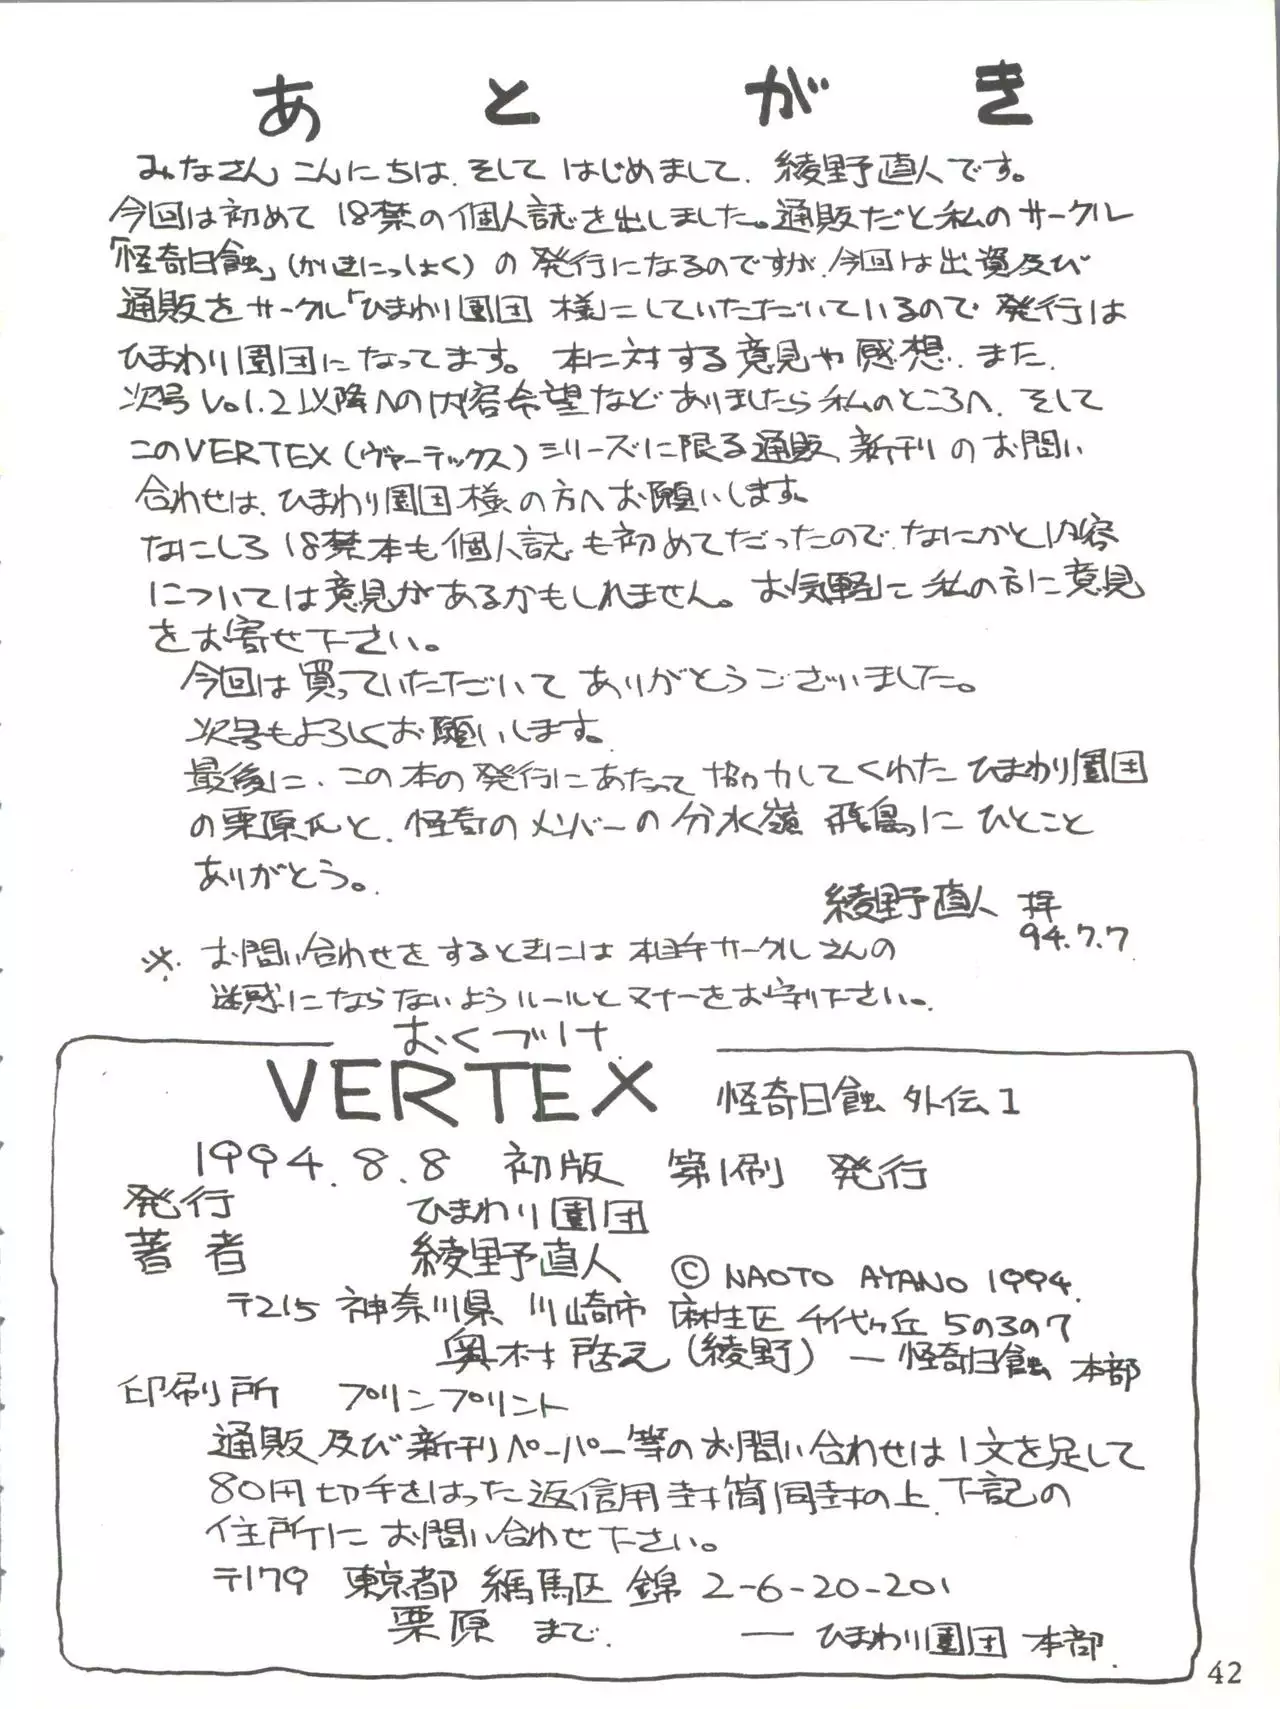 あとがき
みなさんこんにちは、そしてはじめまして、綾野直人です。
今回は初めて18禁の個人誌を出しました。通販だと私のサークル
「怪奇日蝕」(かいきにっしょく)の発行になるのですが、今回は出資及び
通販をサークル「ひまわり園団 様にしていただいているので発行は
ひまわり園団になってます。本に対する意見や感想、また、
次号Vol.2以降への内容希望などありましたら私のところへ、そして
このVERTEX(ヴァーテックス)シリーズに限る通販、新刊のお問い
合わせは、ひまわり園団様の方へお願いします。
なにしろ18禁本も個人誌も初めてだったので、なにかと内容
については意見があるかもしれません。お気軽に私の方に意見
をお寄せ下さい。
今回は買っていただいてありがとうございました。
次号もよろしくお願いします。
最後に、この本の発行にあたって協力してくれたひまわり園団
の栗原氏と、怪奇のメンバーの分水嶺 飛鳥にひとこと
ありがとう。
綾野直人 拝
94.7.7
※ お問い合わせをするときには相手サークルさんの
迷惑にならないようルールとマナーをお守り下さい。
おくづけ
VERTEX 怪奇日蝕 外伝1
1994.8.8 初版 第1刷 発行
発行 ひまわり園団
著者 綾野直人 © NAOTO AYANO 1994.
〒215 神奈川県 川崎市 麻生区 千代ヶ丘 5の3の7
奥村 啓元(綾野) ― 怪奇日蝕 本部
印刷所 プリンプリント
通販及び新刊ペーパー等のお問い合わせは1文を足して
80円切手をはった返信用封筒同封の上、下記の
住所にお問い合わせ下さい。
〒179 東京都 練馬区 錦 2-6-20-201
栗原 まで. ― ひまわり園団 本部.
42